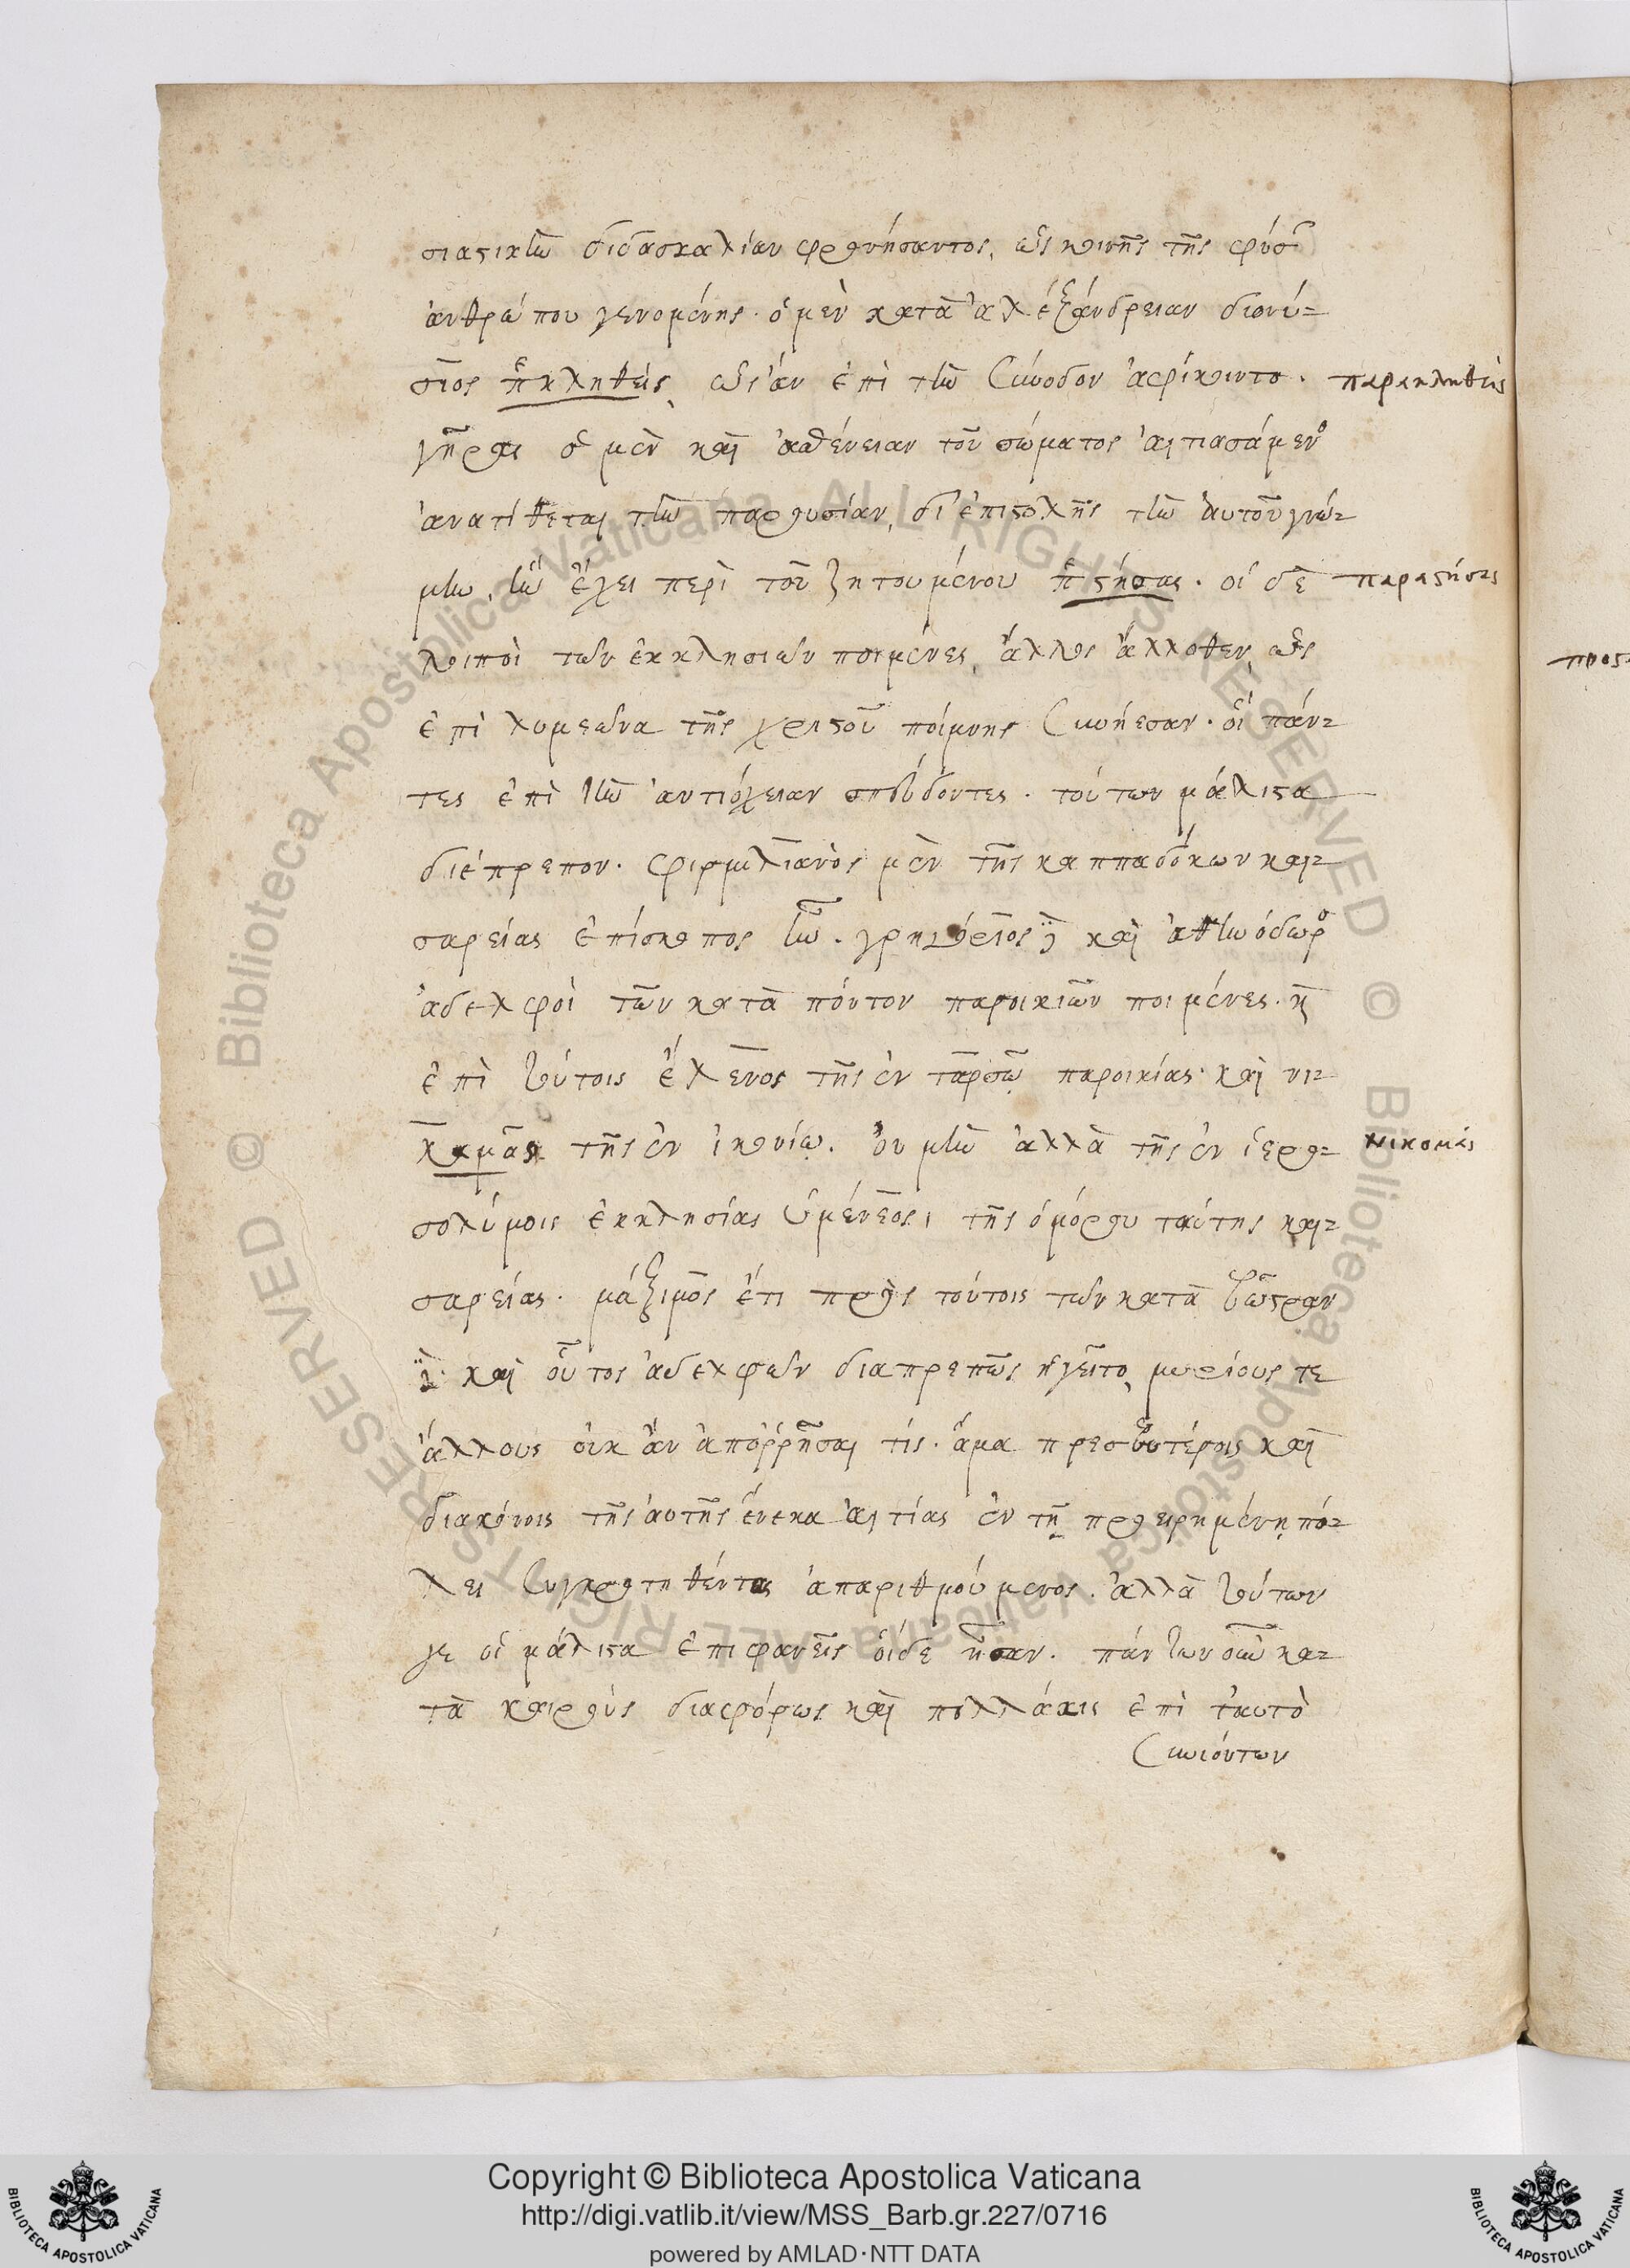 σιαστικὴν διδασκαλίαν φρονήσαντος, ὡς κοινῆς τῆς φύσ
ἀνθρώπου γενομένης. ὁ μὲν κατὰ ἀλεξάνδρειαν διονύ-
σιος π κληθεὶς, ὡς ἂν ἐπὶ τὴν σύνοδον ἀφίκοιντο. παρακληθεὶς
γῆρας ὁ μὲν καὶ ἀσθένειαν τοῦ σώματος αἰτιασάμεν
ἀνατίθεται τὴν παρουσίαν, δι' ἐπιστολῆς τὴν αὐτοῦ γνώ-
μην, ἣν ἔχει περὶ τοῦ ζητουμένου π στήσας. οἱ δὲ παραστήσας
λοιποὶ τῶν ἐκκλησιῶν ποιμένες, ἄλλος ἄλλοθεν, ὡς
ἐπὶ λυμεῶνα τῆς χριστοῦ ποίμνης συνήεσαν. οἱ πάν-
τες ἐπὶ τὴν ἀντιόχειαν σπεύδοντες. τούτων μάλιστα
διέπρεπον. φιρμιλιανὸς μὲν τῆς καππαδόκων και-
σαρείας ἐπίσκοπος ἦν. γρηγόριος καὶ ἀθηνόδωρ
ἀδελφοὶ τῶν κατὰ πόντον παροικιῶν ποιμένες. κ
ἐπὶ τούτοις ἕλενος τῆς ἐν ταρσῷ παροικίας. καὶ νι-
κομᾶς τῆς ἐν ἰκονίῳ. οὐ μὴν ἀλλὰ τῆς ἐν ἱερο- Νικομάς
σολύμοις ἐκκλησίας ὑμέναιος, τῆς ὁμόρου ταύτης και-
σαρείας. μάξιμος ἔτι πρὸς τούτοις τῶν κατὰ βῶστραν
καὶ οὗτος ἀδελφῶν διαπρεπῶς ἡγεῖτο, μυρίους τε
ἄλλους οὐκ ἂν ἀπορρῆσαι τίς. ἅμα πρεσβυτέροις καὶ
διακόνοις τῆς αὐτῆς ἕνεκα αἰτίας ἐν τῇ προειρημένῃ πό-
λει συγκροτηθέντας ἀπαριθμούμενος. ἀλλὰ τούτων
γε οἱ μάλιστα ἐπιφανεῖς οἵδε ἦσαν. πάντων οὖν κα-
τὰ καιροὺς διαφόρως καὶ πολλάκις ἐπὶ ταυτὸ
συνιόντων
Copyright © Biblioteca Apostolica Vaticana
http://digi.vatlib.it/view/MSS_Barb.gr.227/0716
powered by AMLAD·NTT DATA